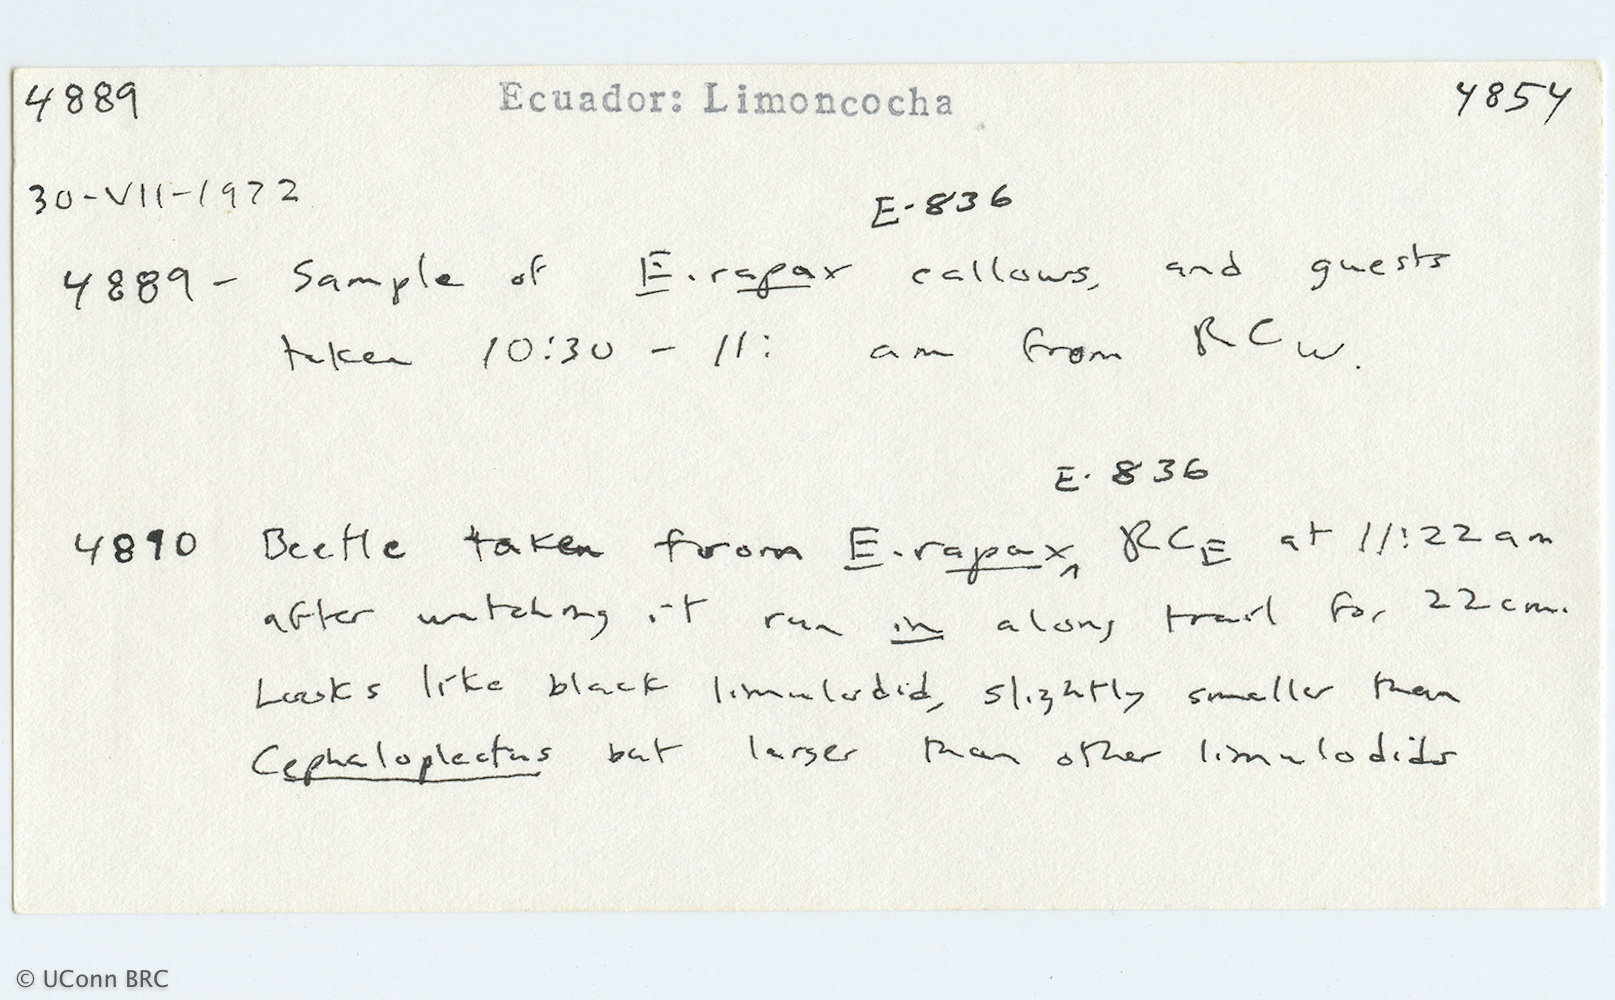 4889 Ecuador: Limoncocha 4854
30-VII-1972
E-836
4889 - Sample of E. rapax callows, and guests
taken 10:30 - 11: am from RCW.
E-836
4890 Beetle taken from E. rapax‸ RCE at 11:22 am
after watching it run in along trail for 22 cm.
Looks like black limulodid, slightly smaller than
Cephaloplectus but larger than other limulodids
© UConn BRC